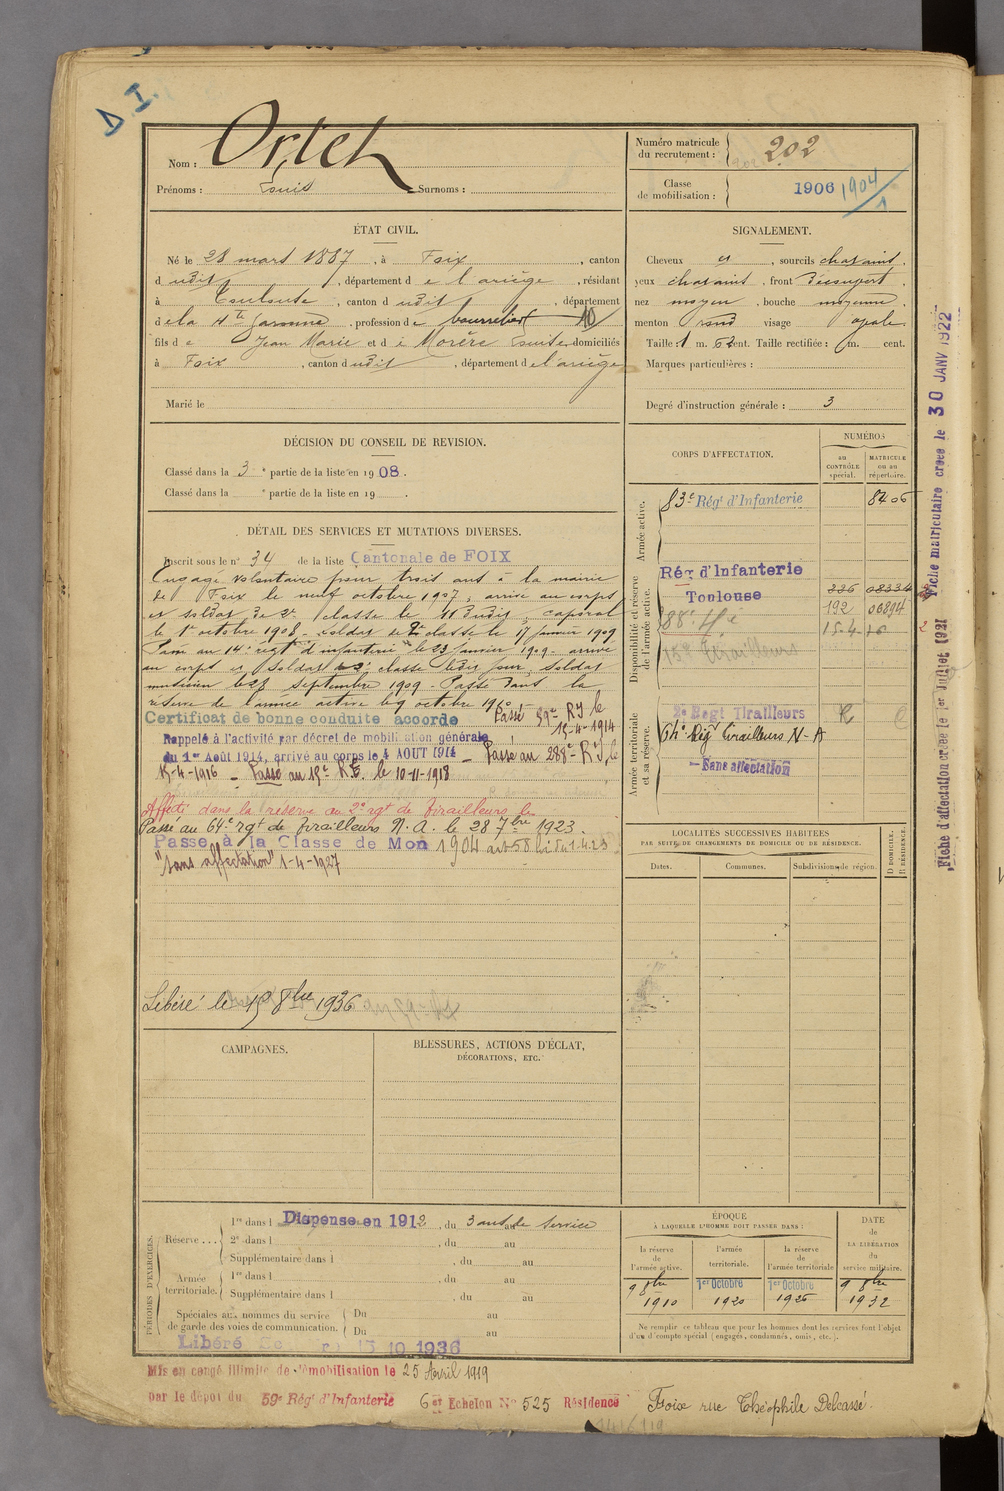 D.I.
Nom : Ortet
Prénoms : Louis Surnoms :
Numéro matricule du recrutement : 202
Classe de mobilisation : 1906 1904/1
ÉTAT CIVIL.
Né le 28 mars 1887, à Foix, canton
d udit, département d e l'ariège, résidant
à Toulouse, canton d udit, département
d e la Hte Garonne, profession d e bourrelier 10
fils d e Jean Marie et d e Morère domiciliés
à Foix, canton d udit, département d e l'ariège
Marié le
SIGNALEMENT.
Cheveux et, sourcils chatains,
yeux chatains, front découvert,
nez moyen, bouche moyenne,
menton rond visage ovale
Taille : 1 m. cent. Taille rectifiée : m. cent.
Marques particulières :
Degré d'instruction générale : 3
DÉCISION DU CONSEIL DE REVISION.
Classé dans la 3e partie de la liste en 1908.
Classé dans la e partie de la liste en 19 .
DÉTAIL DES SERVICES ET MUTATIONS DIVERSES.
Inscrit sous le n° 34 de la liste Cantonale de FOIX
Engagé volontaire pour trois ans à la mairie
de Foix le neuf octobre 1907, arrivé au corps
et soldat de 2e classe le 11 dudit, caporal
le 1er octobre 1908, soldat de 2e classe le 17 janvier 1909
Passé au 14e régt d'infanterie le 23 janvier 1909 - arrivé
au corps et soldat de 2e classe ledit jour, soldat
musicien le 23 septembre 1909 - Passé dans la
réserve de l'armée active le 9 octobre 1910
Certificat de bonne conduite accordé Passé 59e RI le
15-4-1914
Rappelé à l'activité par décret de mobilisation générale
du 1er Août 1914, arrivé au corps le 4 AOUT 1914 - Passé au 288e RI, le
15-4-1916 - Passé au le 10-11-1918
Affecté dans la réserve au 2e rgt de tirailleurs le
Passé au 64e rgt de tirailleurs N.A. le 28 7bre 1923.
Passé à la Classe de Mon 1904 art 58 loi du 1.4.23
"Sans affectation" 1-4-1927
Libéré le 15 8bre 1936
CORPS D'AFFECTATION.
NUMÉROS
au CONTRÔLE spécial.
MATRICULE ou au répertoire.
Armée active.
83e Régt d'Infanterie 8406
Disponibilité et réserve de l'armée active.
Rég d'Infanterie
Toulouse
336 08334
192 06894
15-4-16
Tirailleurs
Armée territoriale et sa réserve.
2e Regt Tirailleurs R
64e Régt tirailleurs N-A
Sans affectation
LOCALITÉS SUCCESSIVES HABITÉES
PAR SUITE DE CHANGEMENTS DE DOMICILE OU DE RÉSIDENCE.
Dates. Communes. Subdivisions de région. D DOMICILE. R RÉSIDENCE.
Fiche matriculaire créée le 30 JANV 1922
Fiche d'affectation créée le 1er Juillet 1921
CAMPAGNES.
BLESSURES, ACTIONS D'ÉCLAT,
DÉCORATIONS, ETC.
PÉRIODES D'EXERCICES.
Réserve ...
1re dans l Dispensé en 1912, du 3 ans au de service
2e dans l , du au
Supplémentaire dans l , du au
Armée territoriale.
1re dans l , du au
Supplémentaire dans l , du au
Spéciales aux hommes du service
de garde des voies de communication.
Du au
Du au
Libéré le 15 10 1936
ÉPOQUE
À LAQUELLE L'HOMME DOIT PASSER DANS :
la réserve de l'armée active.
l'armée territoriale.
la réserve de l'armée territoriale
DATE de LA LIBÉRATION du service militaire.
9 8bre 1910
1er Octobre 1920
1er Octobre 1926
9 8bre 1932
Ne remplir ce tableau que pour les hommes dont les services font l'objet
d'un décompte spécial (engagés, condamnés, omis, etc.).
Mis en congé illimité de démobilisation le 25 Avril 1919
par le dépôt du 59e Régt d'Infanterie 6e Echelon N° 525 Résidence Foix rue Théophile Delcassé.